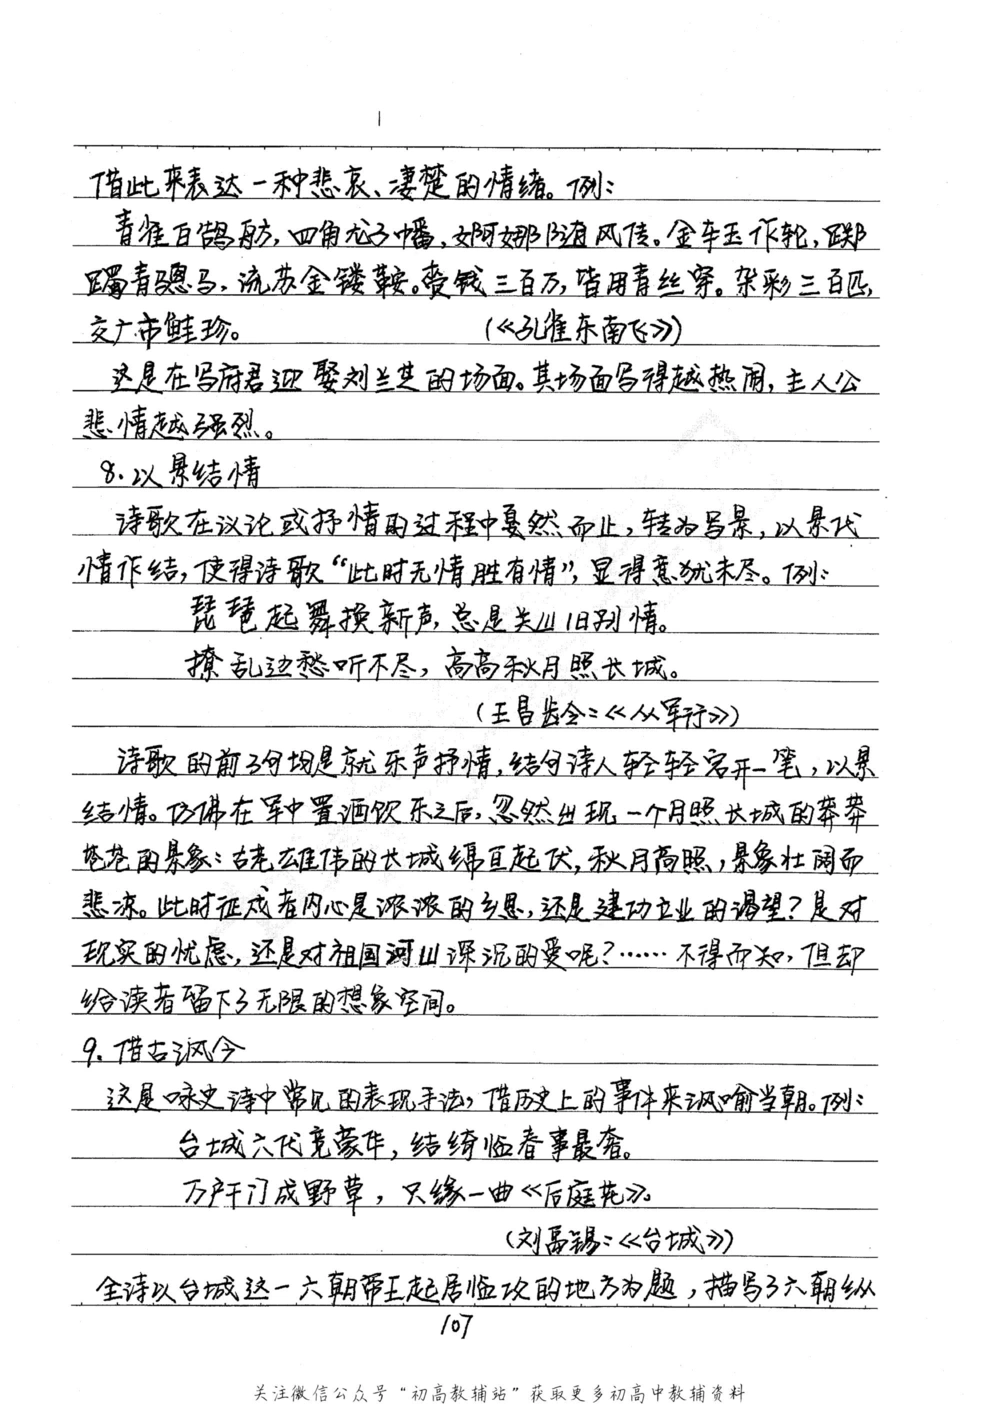 借此来表达一种悲哀、凄楚的情绪。例：
青雀白鹄舫，四角龙子幡，婀娜随风传。金车玉作轮，踯
躅青骢马，流苏金镂鞍。赍钱三百万，皆用青丝穿。杂彩三百匹，
交广市鲑珍。 （《孔雀东南飞》）
这是在写府君迎娶刘兰芝的场面。其场面写得越热闹，主人公
悲情越强烈。
8.以景结情
诗歌在议论或抒情的过程中戛然而止，转为写景，以景代
情作结，使得诗歌“此时无情胜有情”，显得意犹未尽。例：
琵琶起舞换新声，总是关山旧别情。
撩乱边愁听不尽，高高秋月照长城。
（王昌龄：《从军行》）
诗歌的前3句均是就乐声抒情，结句诗人轻轻宕开一笔，以景
结情。仿佛在军中置酒饮乐之后，忽然出现一个月照长城的莽莽
苍苍的景象：古老雄伟的长城绵亘起伏，秋月高照，景象壮阔而
悲凉。此时征戍者内心是浓浓的乡思，还是建功立业的渴望？是对
现实的忧虑，还是对祖国河山深沉的爱呢？……不得而知，但却
给读者留下了无限的想象空间。
9.借古讽今
这是咏史诗中常见的表现手法，借历史上的事件来讽喻当朝。例：
台城六代竞豪华，结绮临春事最奢。
万户千门成野草，只缘一曲《后庭花》。
（刘禹锡：《台城》）
全诗以台城这一六朝帝王起居临政的地方为题，描写了六朝纵
107
关注微信公众号“初高教辅站”获取更多初高中教辅资料